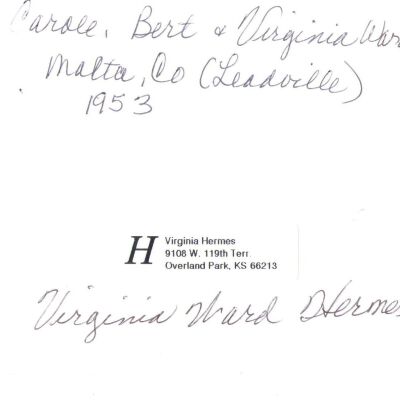 Carole, Bert & Virginia Ward
Malta, Co (Leadville)
1953
H
Virginia Hermes
9108 W. 119th Terr.
Overland Park, KS 66213
Virginia Ward Hermes